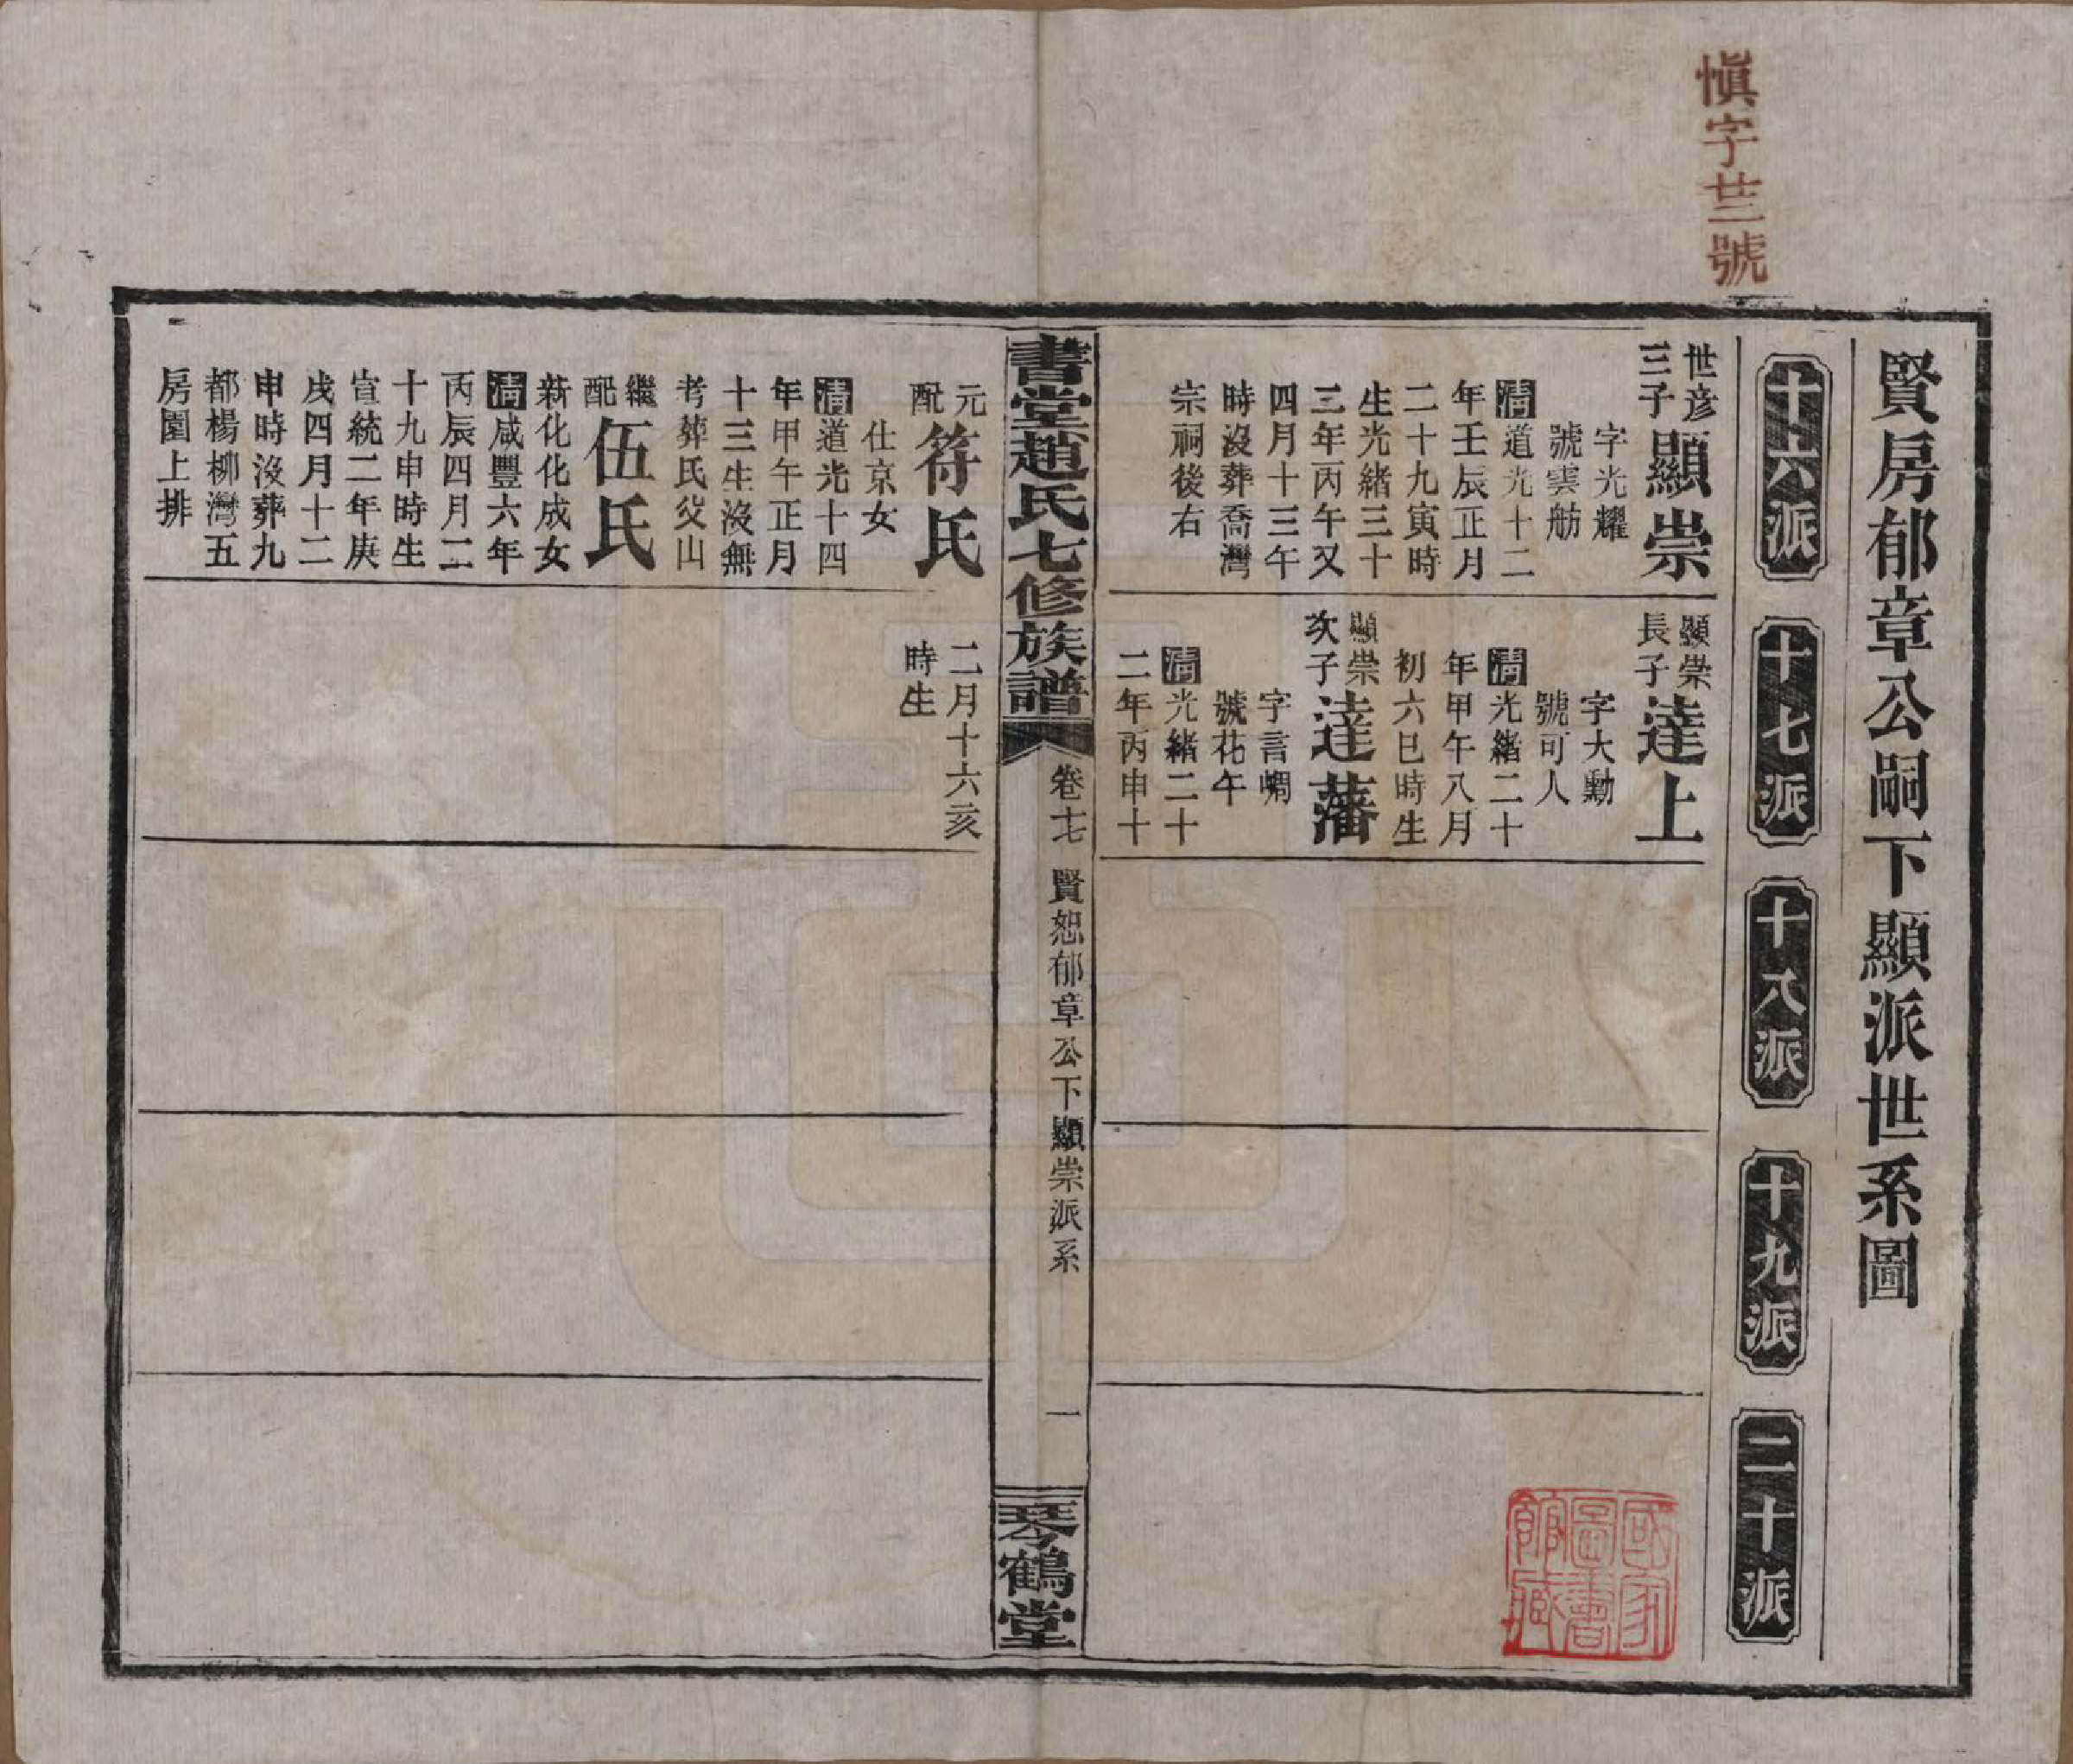 慎字廿三號
賢房郁章公嗣下顯派世系圖
十六派
十七派
十八派
十九派
二十派
世彦
三子
顯崇
字光耀
號雲舫
清道光十二
年壬辰正月
二十九寅時
生光緒三十
三年丙午又
四月十三午
時沒葬喬灣
宗祠後右
顯崇
長子
達上
字大勳
號可人
清光緒二十
年甲午八月
初六巳時生
顯崇
次子
達藩
字言嵎
號花午
清光緒二十
二年丙申十
書堂趙氏七修族譜
卷十七
賢恕郁章公下顯崇派系
一
琴鶴堂
元
配
符氏
仕京女
清道光十四
年甲午正月
十三生沒無
考葬氏父山
繼
配
伍氏
新化化成女
清咸豐六年
丙辰四月二
十九申時生
宣統二年庚
戌四月十二
申時沒葬九
都楊柳灣五
房園上排
二月十六亥
時生
國家
圖書
館藏